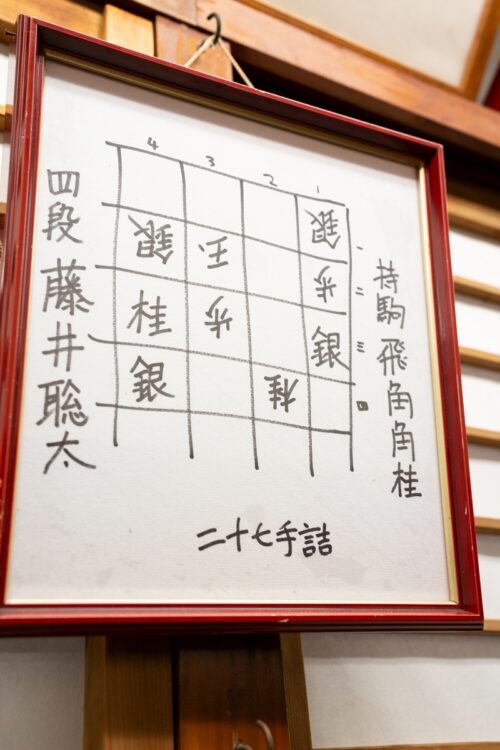 4 3 2 1
銀 一
銀 玉 歩 二
桂 歩 銀 三
銀 桂 四
持駒 飛角角桂
四段 藤井聡太
二十七手詰